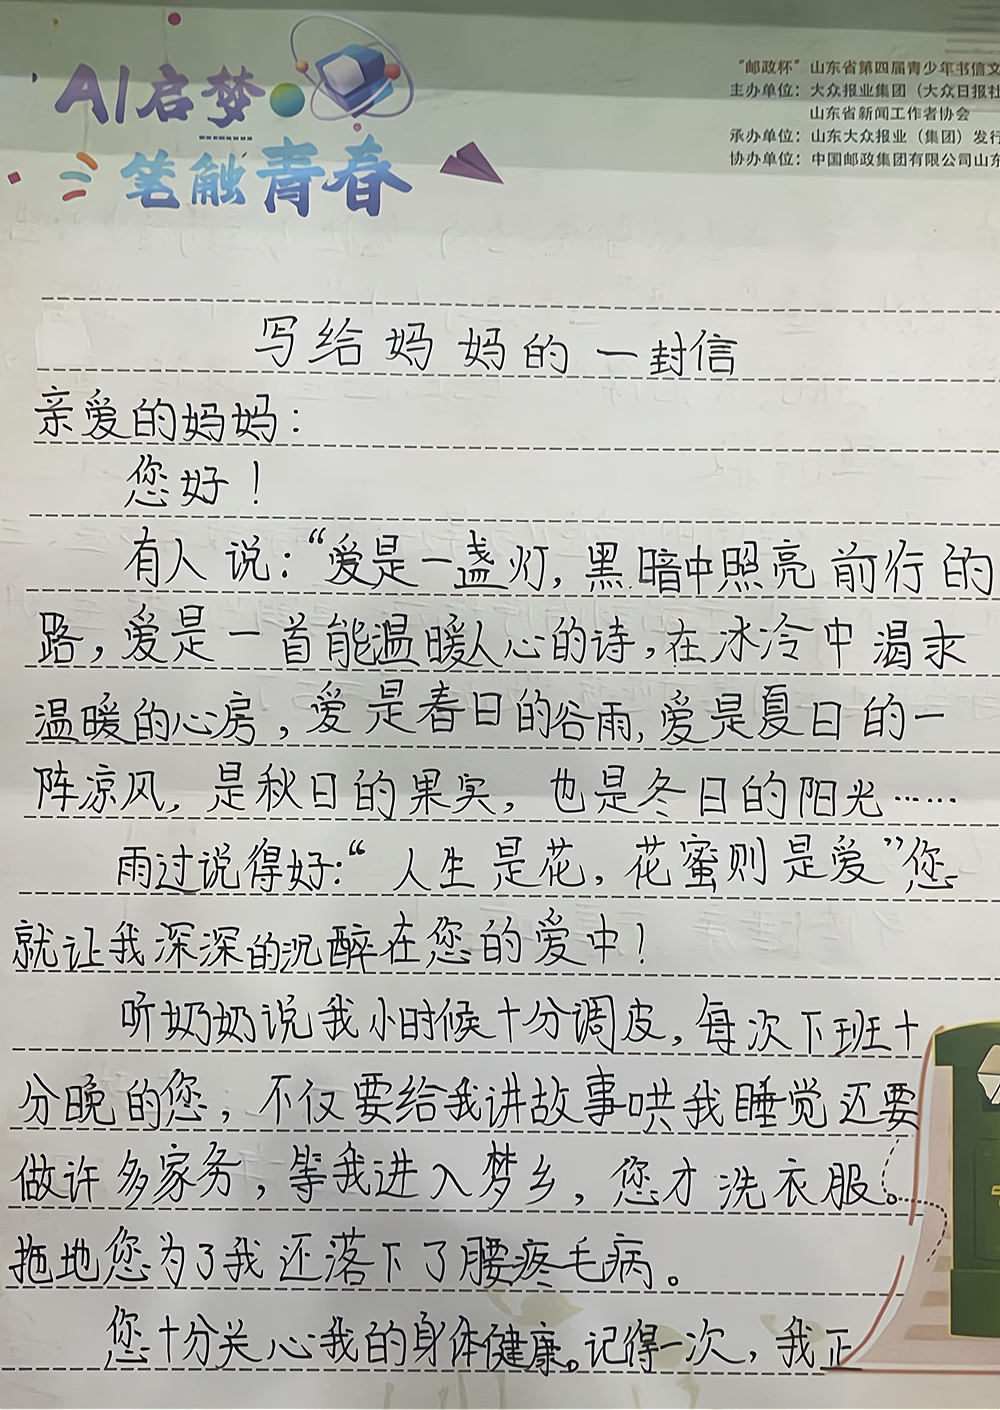 AI启梦
笔触青春
“邮政杯”山东省第四届青少年书信文
主办单位：大众报业集团（大众日报社
山东省新闻工作者协会
承办单位：山东大众报业（集团）发行
协办单位：中国邮政集团有限公司山东
写给妈妈的一封信
亲爱的妈妈：
您好！
有人说：“爱是一盏灯，黑暗中照亮前行的
路，爱是一首能温暖人心的诗，在冰冷中渴求
温暖的心房，爱是春日的谷雨，爱是夏日的一
阵凉风，是秋日的果实，也是冬日的阳光……
雨过说得好：“人生是花，花蜜则是爱”您
就让我深深的沉醉在您的爱中！
听奶奶说我小时候十分调皮，每次下班十
分晚的您，不仅要给我讲故事哄我睡觉还要
做许多家务，等我进入梦乡，您才洗衣服。
拖地您为了我还落下了腰疼毛病。
您十分关心我的身体健康。记得一次，我正